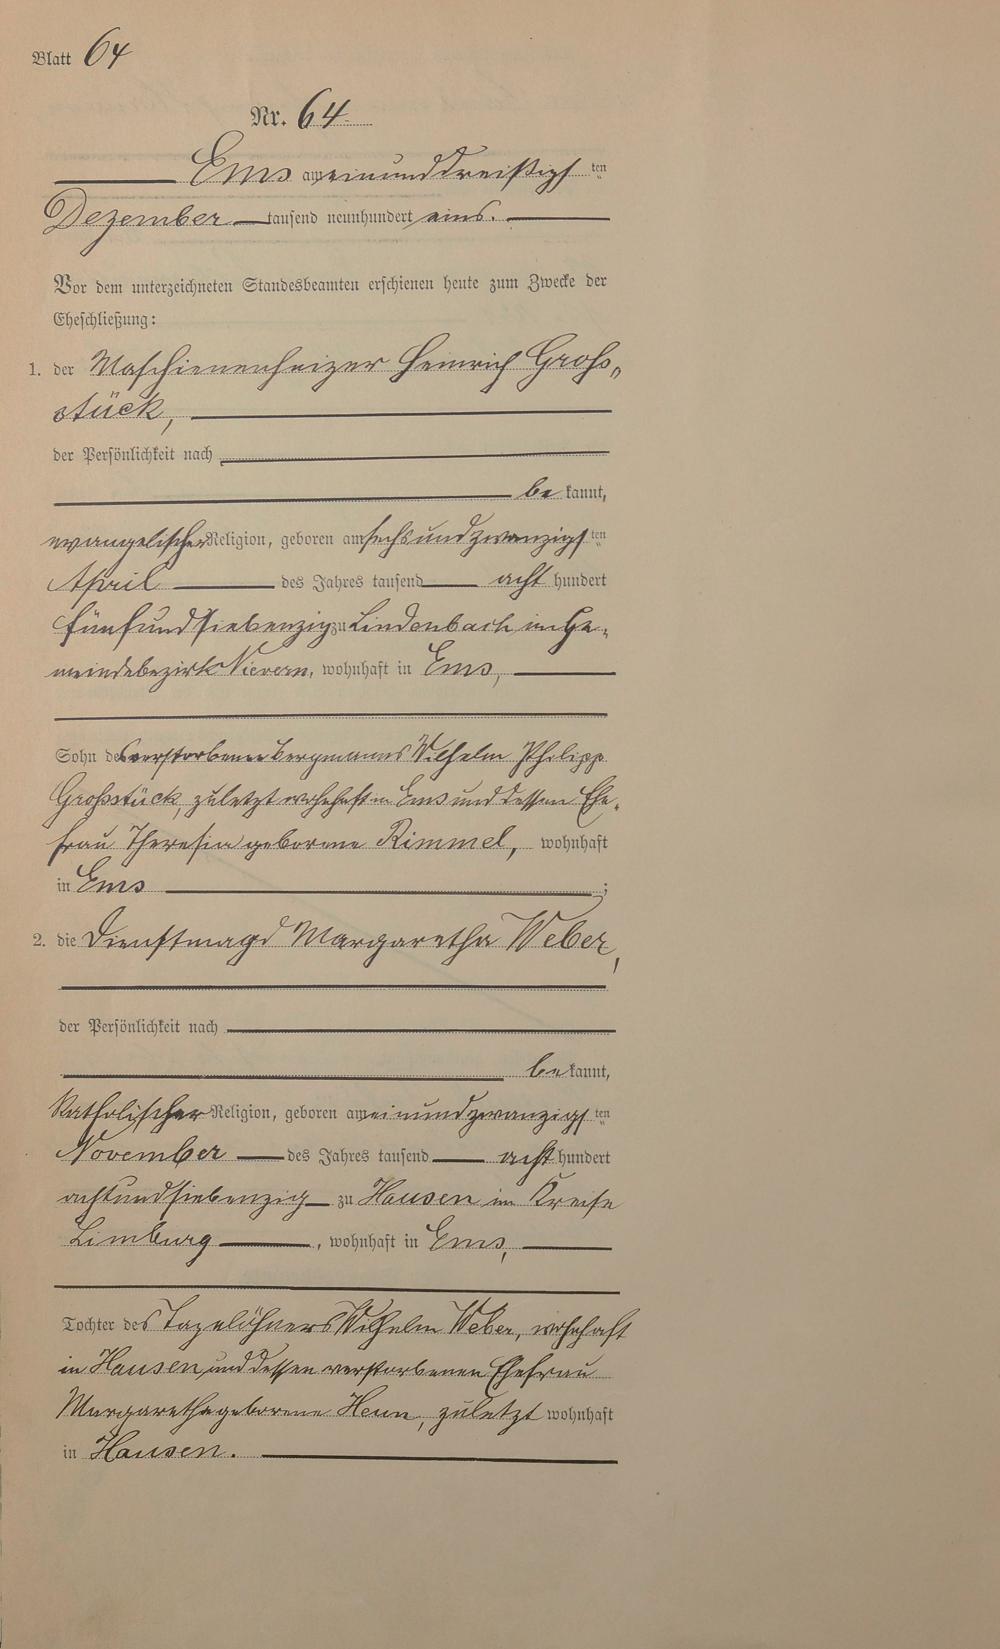 Blatt 64
Nr. 64
Ems am einunddreißigsten
Dezember tausend neunhundert eins.
Vor dem unterzeichneten Standesbeamten erschienen heute zum Zwecke der
Eheschließung:
1. der Maschienenheizer Heinrich Groß„
stück,
der Persönlichkeit nach
be kannt,
evangelischer Religion, geboren am sechsundzwanzigsten
April des Jahres tausend acht hundert
fünfundsiebenzig zu Lindenbach im Ge„
meindebezirk Nievern, wohnhaft in Ems,
Sohn des verstorbenen Bergmanns Wilhelm Philipp
Großstück, zuletzt wohnhaft in Ems und dessen Ehe„
frau Theresia geborene Rimmel, wohnhaft
in Ems ;
2. die Dienstmagd Margaretha Weber,
der Persönlichkeit nach
be kannt,
katholischer Religion, geboren am einundzwanzigsten
November des Jahres tausend acht hundert
achtundsiebenzig zu Hausen im Kreise
Limburg, wohnhaft in Ems,
Tochter des Tagelöhners Wilhelm Weber, wohnhaft
in Hausen und dessen verstorbenen Ehefrau
Margaretha geborene Heun, zuletzt wohnhaft
in Hausen.